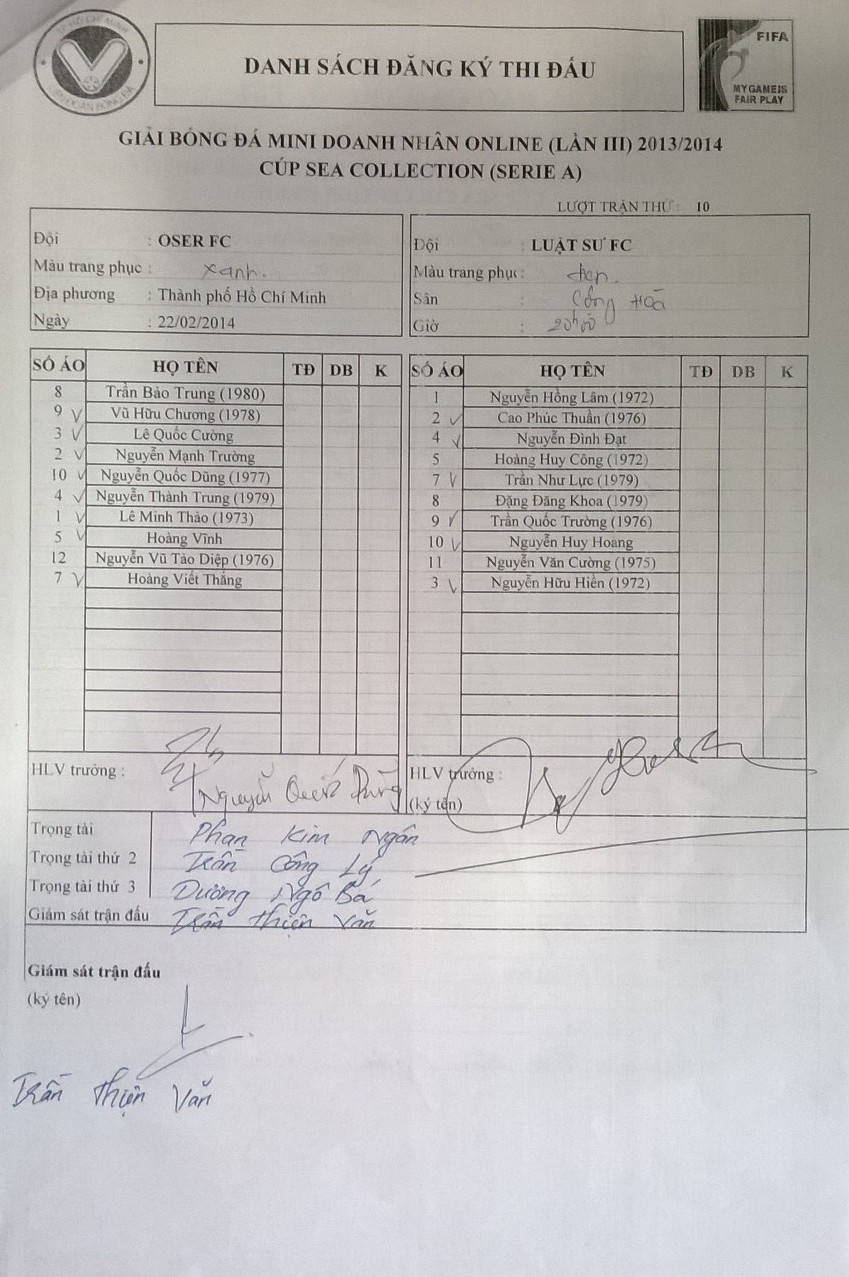 TP HỒ CHÍ MINH
FIFA
DANH SÁCH ĐĂNG KÝ THI ĐẤU
MY GAME IS
FAIR PLAY
GIẢI BÓNG ĐÁ MINI DOANH NHÂN ONLINE (LẦN III) 2013/2014
CÚP SEA COLLECTION (SERIE A)
LƯỢT TRẬN THỨ : 10
Đội : OSER FC
Màu trang phục : xanh.
Địa phương : Thành phố Hồ Chí Minh
Ngày : 22/02/2014
Đội : LUẬT SƯ FC
Màu trang phục : đen.
Sân : Cộng Hoà
Giờ : 20h00
SỐ ÁO HỌ TÊN TĐ DB K
8 Trần Bảo Trung (1980)
9 ✓ Vũ Hữu Chương (1978)
3 ✓ Lê Quốc Cường
2 ✓ Nguyễn Mạnh Trường
10 ✓ Nguyễn Quốc Dũng (1977)
4 ✓ Nguyễn Thành Trung (1979)
1 ✓ Lê Minh Thảo (1973)
5 ✓ Hoàng Vĩnh
12 Nguyễn Vũ Tảo Diệp (1976)
7 ✓ Hoàng Viết Thắng
SỐ ÁO HỌ TÊN TĐ DB K
1 Nguyễn Hồng Lâm (1972)
2 ✓ Cao Phúc Thuần (1976)
4 ✓ Nguyễn Đình Đạt
5 Hoàng Huy Công (1972)
7 ✓ Trần Như Lực (1979)
8 Đặng Đăng Khoa (1979)
9 ✓ Trần Quốc Trường (1976)
10 ✓ Nguyễn Huy Hoang
11 Nguyễn Văn Cường (1975)
3 ✓ Nguyễn Hữu Hiền (1972)
HLV trưởng :
Nguyễn Quốc Dũng
HLV trưởng :
(ký tên)
Trọng tài Phan Kim Ngân
Trọng tài thứ 2 Trần Công Lý
Trọng tài thứ 3 Dương Ngô Bá
Giám sát trận đấu Trần Thiện Văn
Giám sát trận đấu
(ký tên)
Trần Thiện Văn